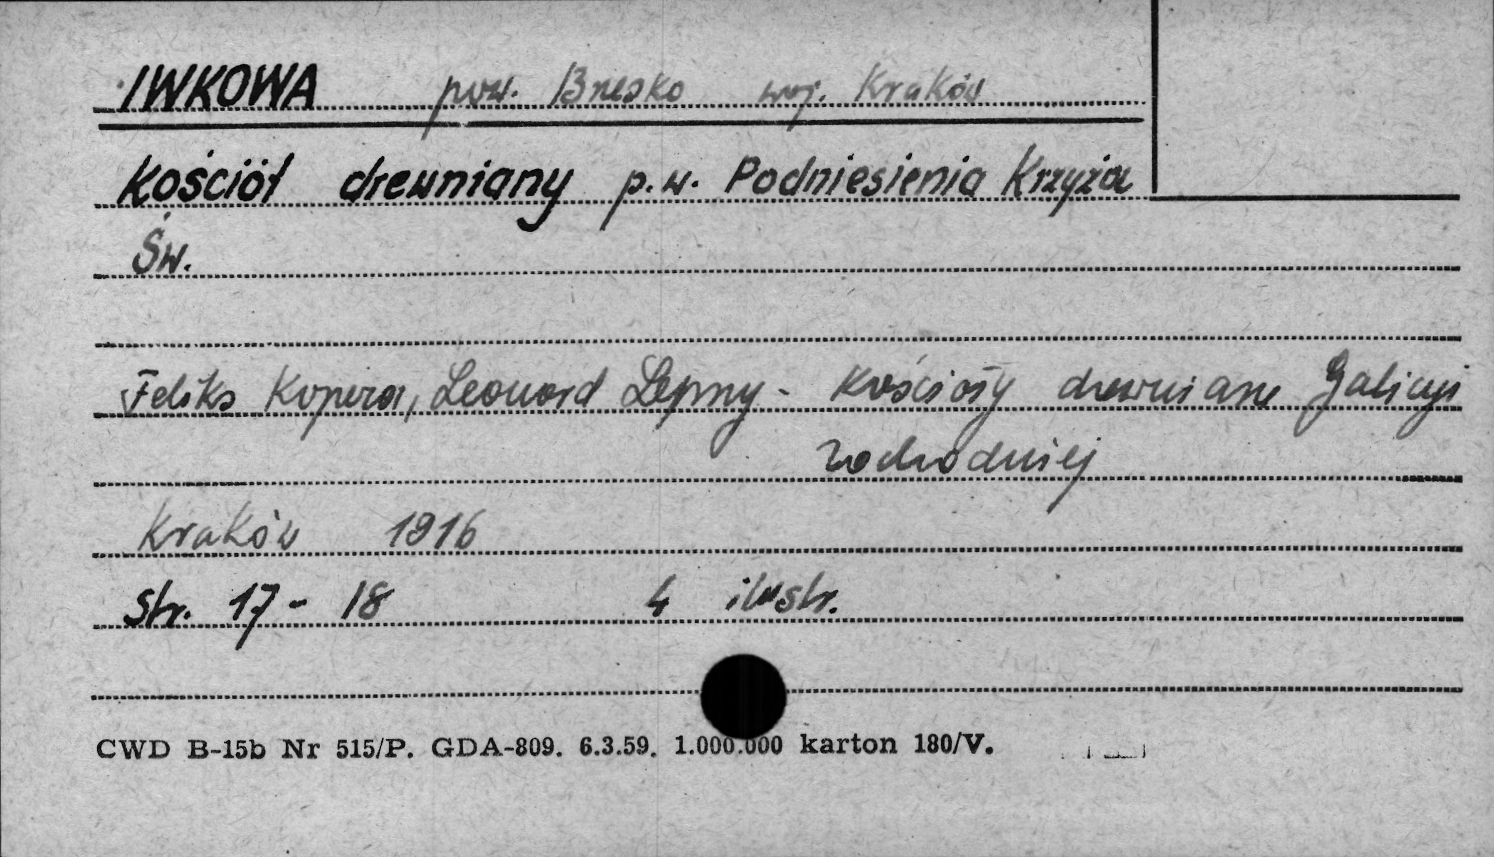 IWKOWA pow. Brzesko woj. Kraków
Kościół drewniany p.w. Podniesienia Krzyża
Św.
Feliks Kopera, Leonard Lepszy - Kościoły drewniane Galicyi
Zachodniej
Kraków 1916
str. 17 - 18 4 ilustr.
CWD B-15b Nr 515/P. GDA-809. 6.3.59. 1.000.000 karton 180/V.